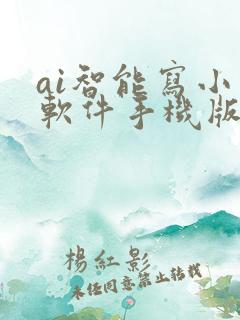 ai智能寫小
軟件手機版
楊紅影
未經同意禁止轉載